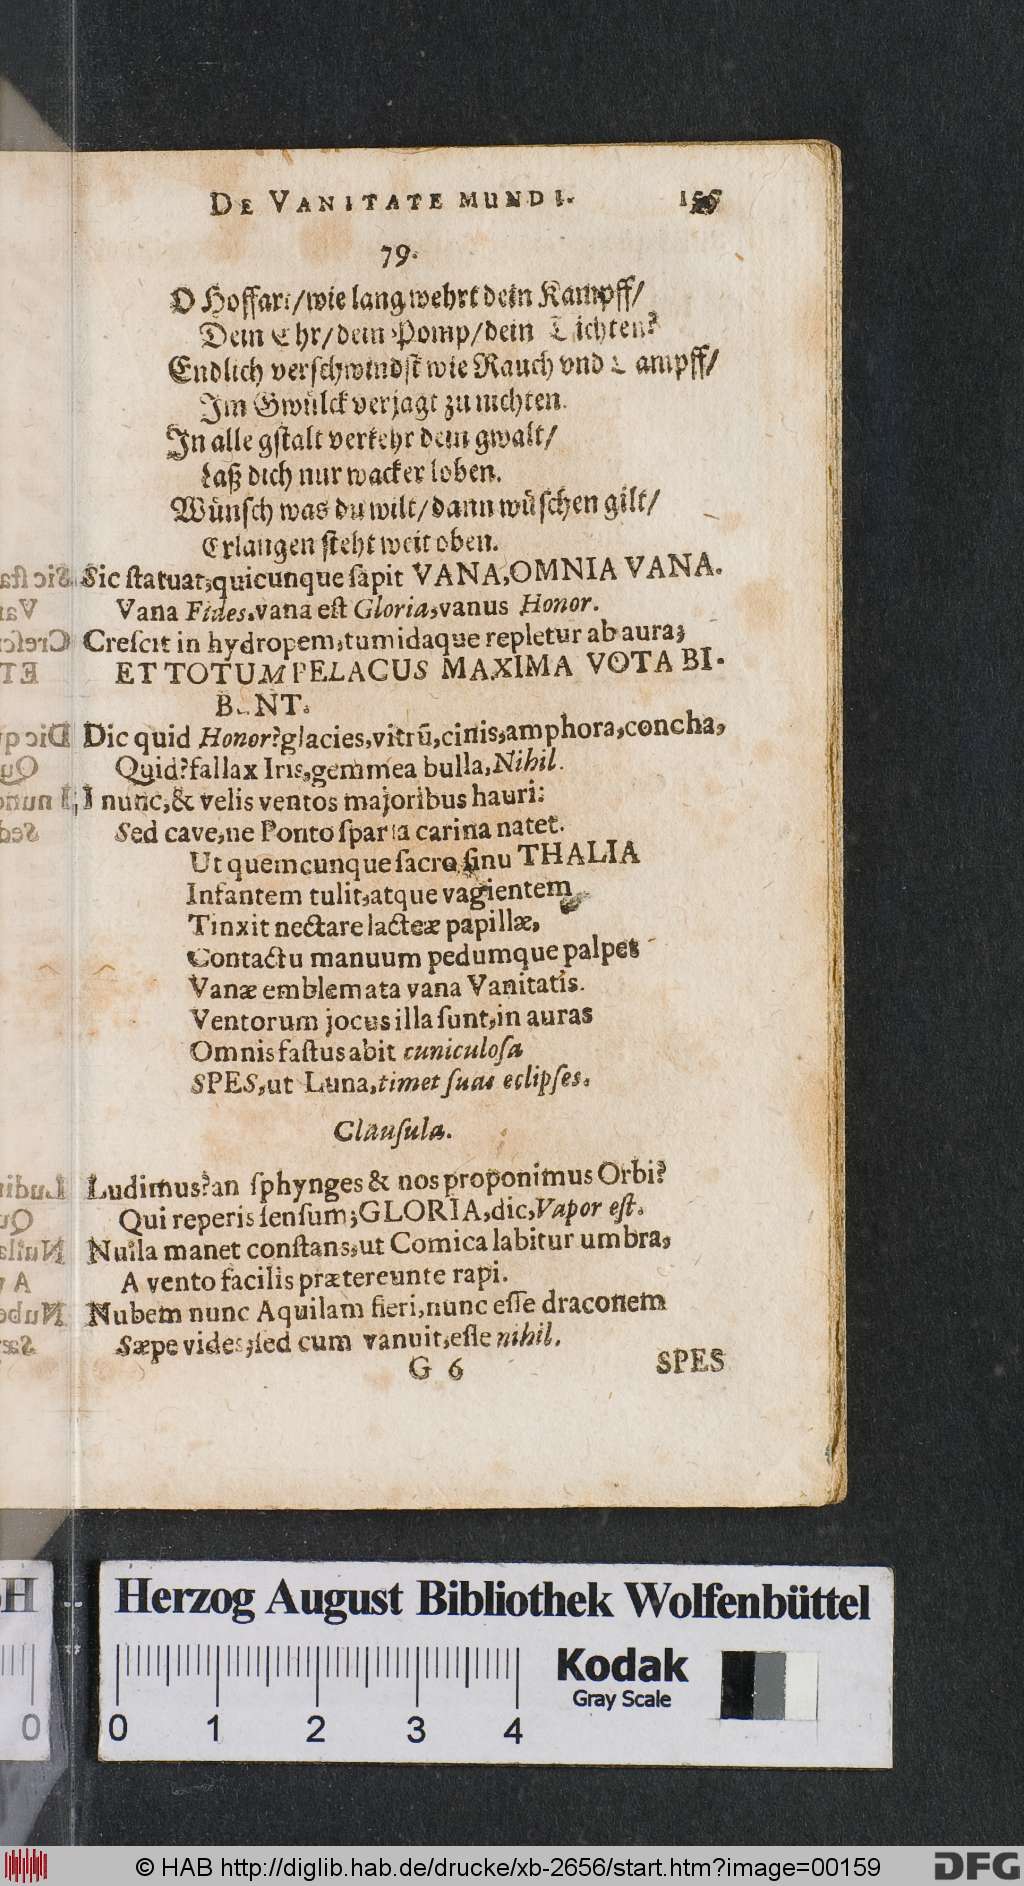 DE VANITATE MUNDI.
79.
O Hoffart/wie lang wehrt dein Kampff/
Dein Ehr/dein Pomp/dein Tichten?
Endlich verschwindst wie Rauch vnd Dampff/
Im Gwülck verjagt zu nichten.
In alle gstalt verkehr dein gwalt/
Laß dich nur wacker loben.
Wünsch was du wilt/dann wüschen gilt/
Erlangen steht weit oben.
Sic statuat,quicunque sapit VANA,OMNIA VANA.
Vana Fides,vana est Gloria,vanus Honor.
Crescit in hydropem,tumidaque repletur ab aura;
ET TOTUM PELAGUS MAXIMA VOTA BI-
BUNT.
Dic quid Honor?glacies,vitrū,cinis,amphora,concha,
Quid?fallax Iris,gemmea bulla,Nihil.
I nunc,& velis ventos majoribus hauri:
Sed cave,ne Ponto sparsa carina natet.
Ut quemcunque sacro sinu THALIA
Infantem tulit,atque vagientem
Tinxit nectare lacteæ papillæ,
Contactu manuum pedumque palpet
Vanæ emblemata vana Vanitatis.
Ventorum jocus illa sunt,in auras
Omnis fastus abit cuniculosa
SPES,ut Luna,timet suas eclipses.
Clausula.
Ludimus?an sphynges & nos proponimus Orbi?
Qui reperis sensum;GLORIA,dic,Vapor est.
Nulla manet constans,ut Comica labitur umbra,
A vento facilis prætereunte rapi.
Nubem nunc Aquilam fieri,nunc esse draconem
Sæpe vides;sed cum vanuit,esse nihil.
G 6 SPES
Herzog August Bibliothek Wolfenbüttel
Kodak
Gray Scale
0 0 1 2 3 4
© HAB http://diglib.hab.de/drucke/xb-2656/start.htm?image=00159
DFG